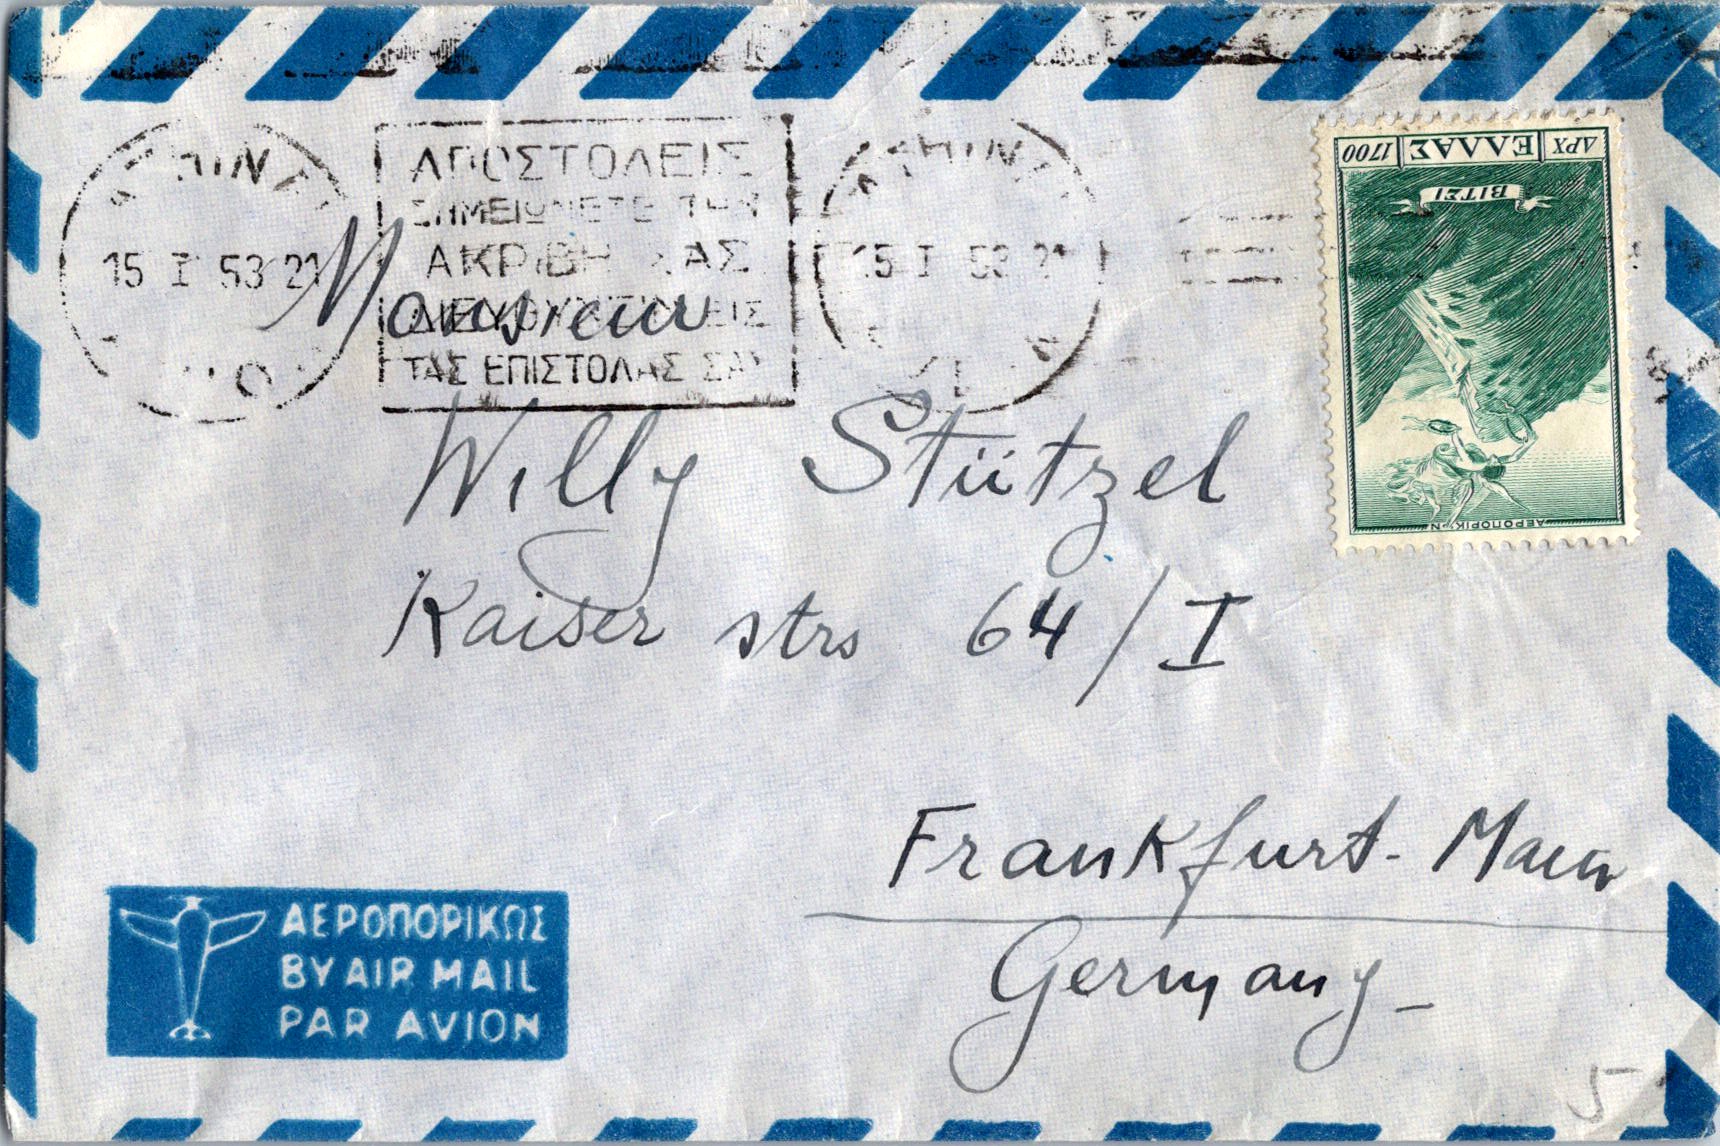 ΑΘΗΝΑΙ
15 I 53 21
ΑΠΟΣΤΟΛΕΙΣ
ΣΗΜΕΙΩΝΕΤΕ ΤΗΝ
ΑΚΡΙΒΗ ΣΑΣ
ΔΙΕΥΘΥΝΣΙΝ ΕΙΣ
ΤΑΣ ΕΠΙΣΤΟΛΑΣ ΣΑΣ
ΑΘΗΝΑΙ
15 I 53 21
ΔΡΧ ΕΛΛΑΣ 1700
ΒΙΤΣΙ
ΑΕΡΟΠΟΡΙΚΟΝ
Monsieur
Willy Stützel
Kaiser strs 64/I
Frankfurt-Main
Germany
ΑΕΡΟΠΟΡΙΚΩΣ
BY AIR MAIL
PAR AVION
5